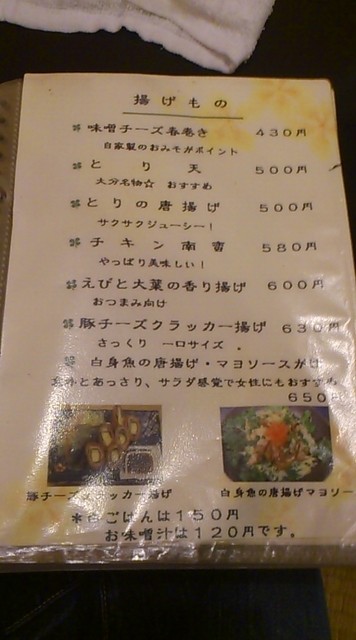 揚げもの
味噌チーズ春巻き 430円
自家製のおみそがポイント
とり天 500円
大分名物☆ おすすめ
とりの唐揚げ 500円
サクサクジューシー!
チキン南蛮 580円
やっぱり美味しい!
えびと大葉の香り揚げ 600円
おつまみ向け
豚チーズクラッカー揚げ 630円
さっくり 一口サイズ 。
白身魚の唐揚げ・マヨソースがけ
とあっさり、サラダ感覚で女性にもおすすめ
650円
豚チーズクラッカー揚げ
白身魚の唐揚げマヨソー
*白ごはんは150円
お味噌汁は120円です。